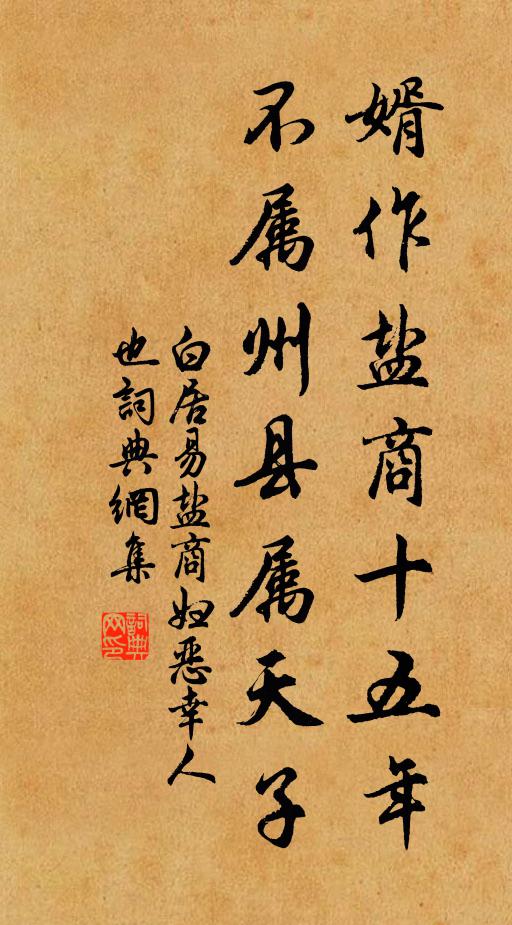 婿作盐商十五年
不属州县属天子
白居易盐商妇恶幸人
也詞典網集
詞典网印